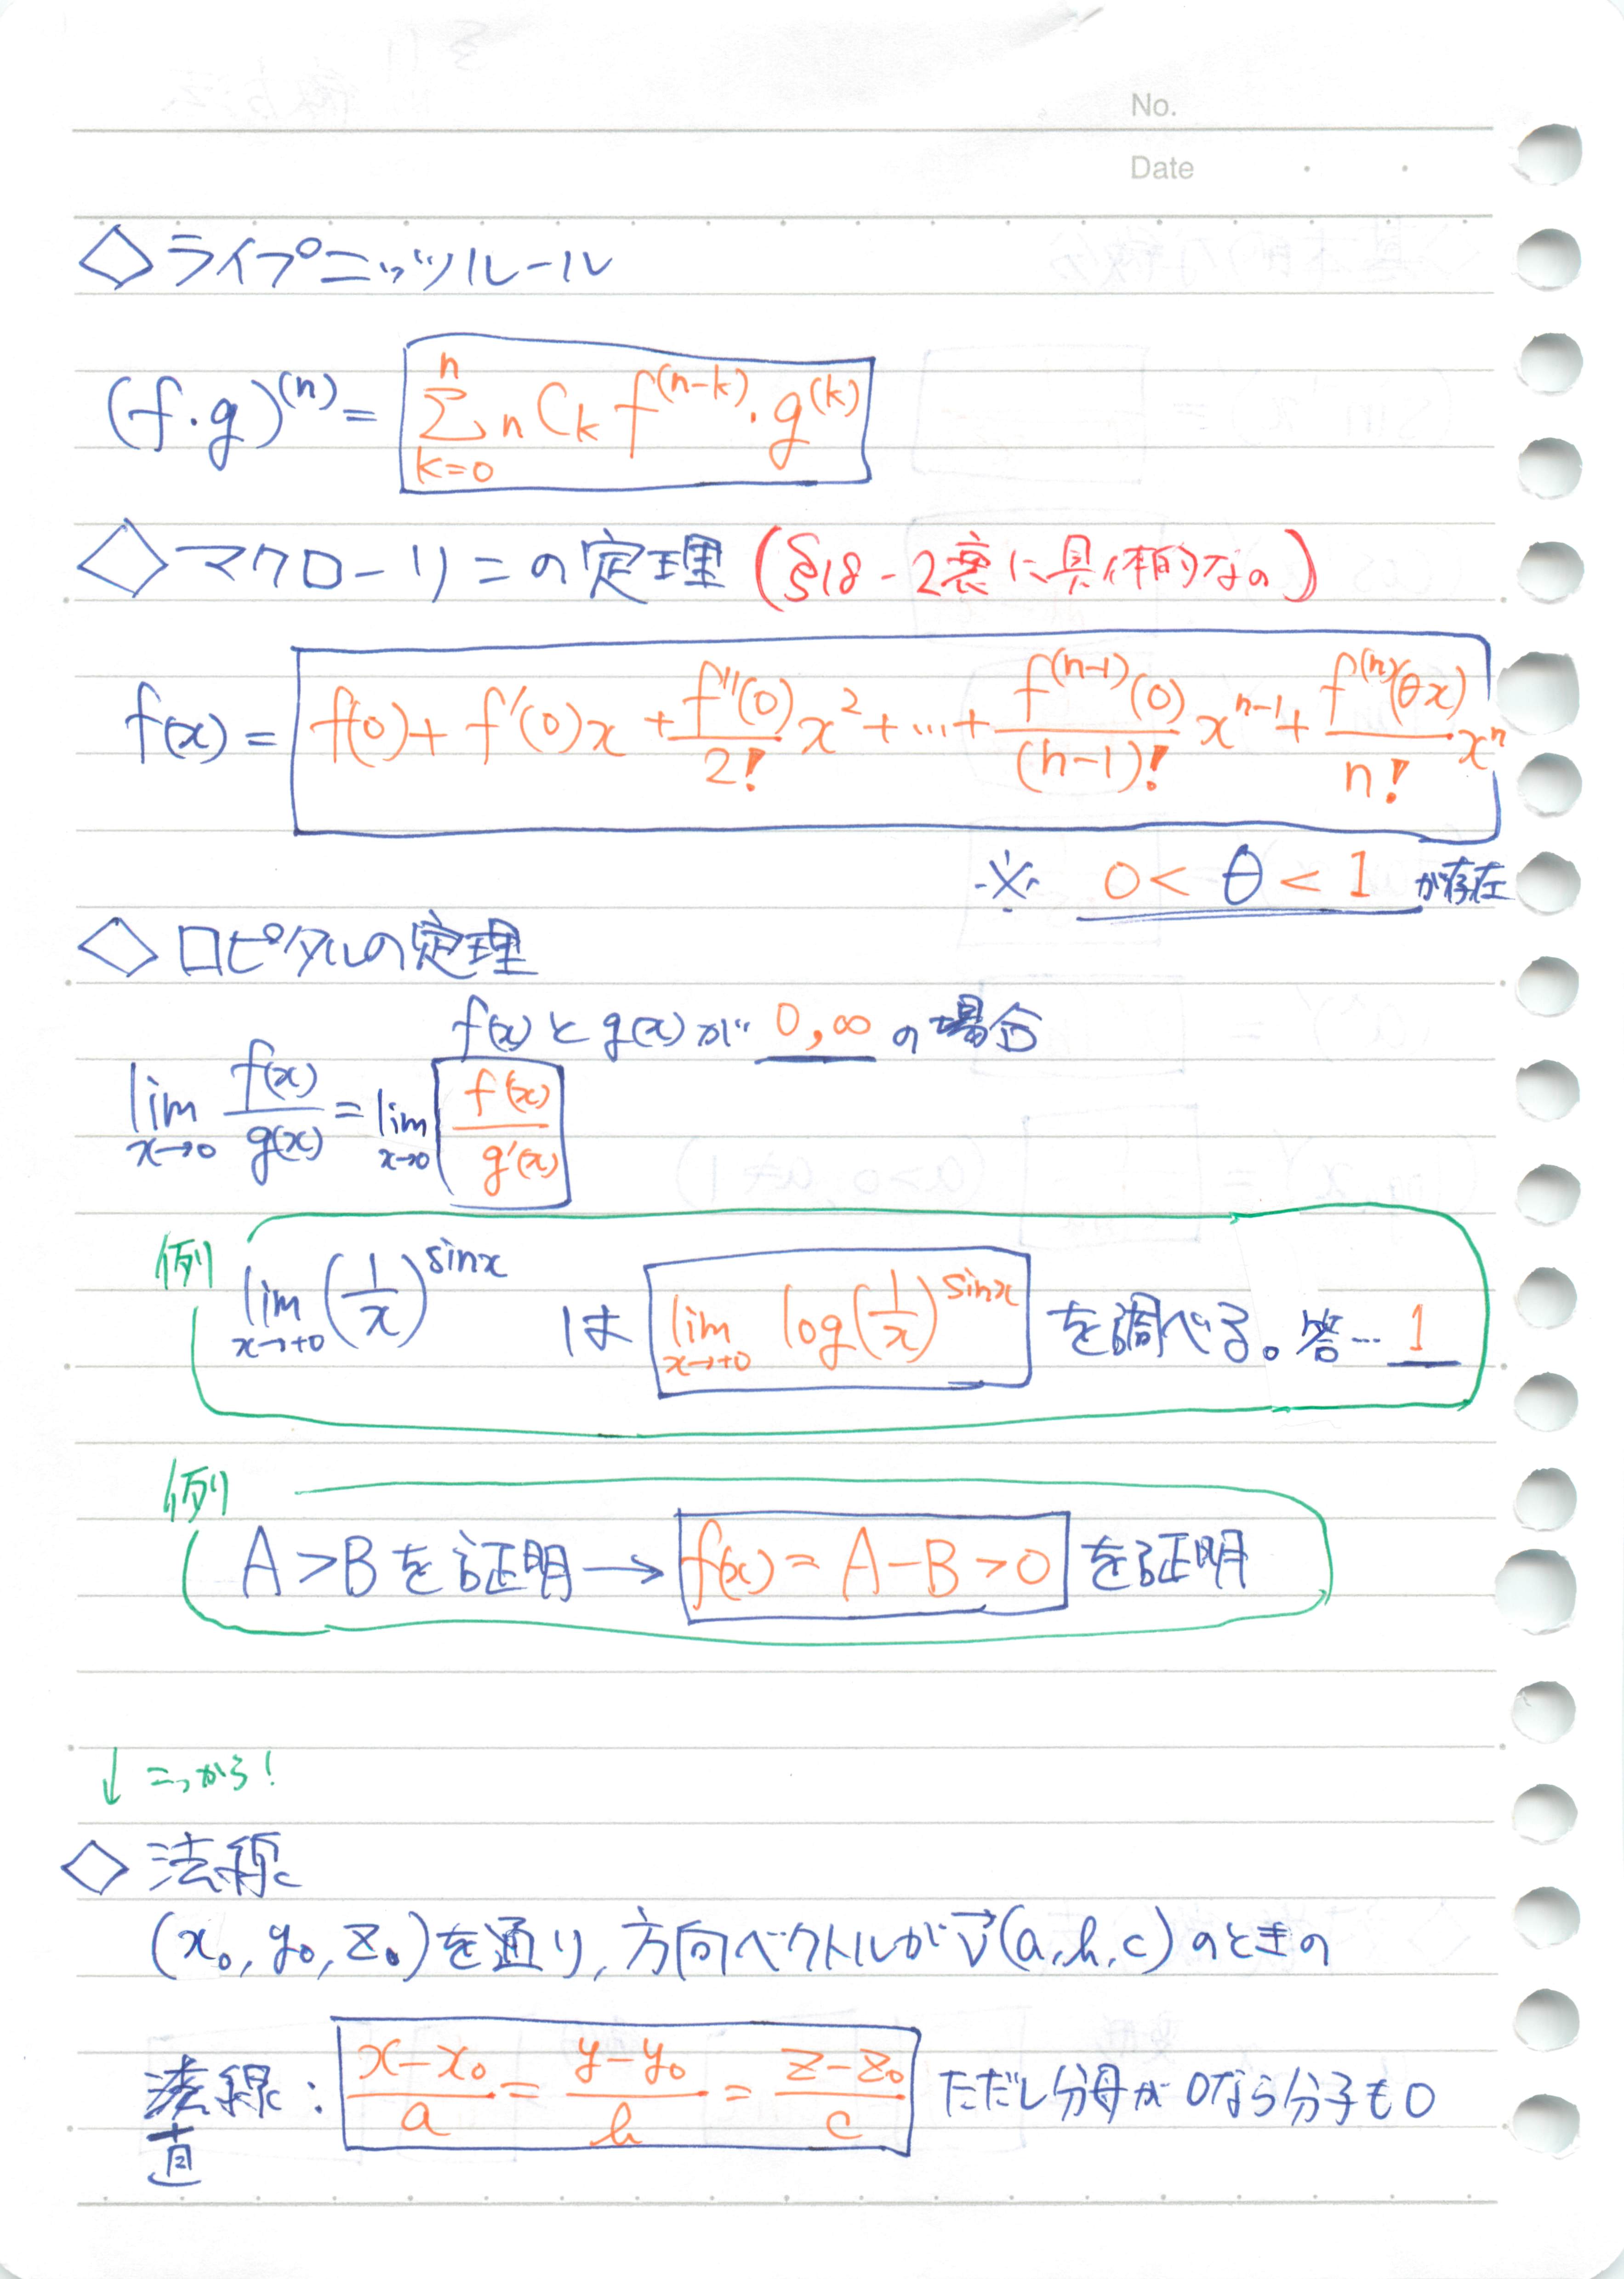 No.
Date
◇ ライプニッツルール
(f・g)^(n) = Σ_{k=0}^{n} nCk f^(n-k)・g^(k)
◇ マクローリニの定理 (§18-2裏に具体的なの)
f(x) = f(0) + f'(0)x + f''(0)/2! x^2 + … + f^(n-1)(0)/(n-1)! x^(n-1) + f^(n)(θx)/n! x^n
※ 0 < θ < 1 が存在
◇ ロピタルの定理
f(x)とg(x)が 0, ∞ の場合
lim_{x→0} f(x)/g(x) = lim_{x→0} f'(x)/g'(x)
例 lim_{x→+0} (1/x)^sinx は lim_{x→+0} log(1/x)^sinx を調べる。答… 1
例
A>Bを証明→ f(x) = A-B>0 を証明
↓ こっから!
◇ 法線
(x₀, y₀, z₀)を通り, 方向ベクトルがv⃗(a, b, c)のときの
線: (x-x₀)/a = (y-y₀)/b = (z-z₀)/c ただし分母が0なら分子も0
直